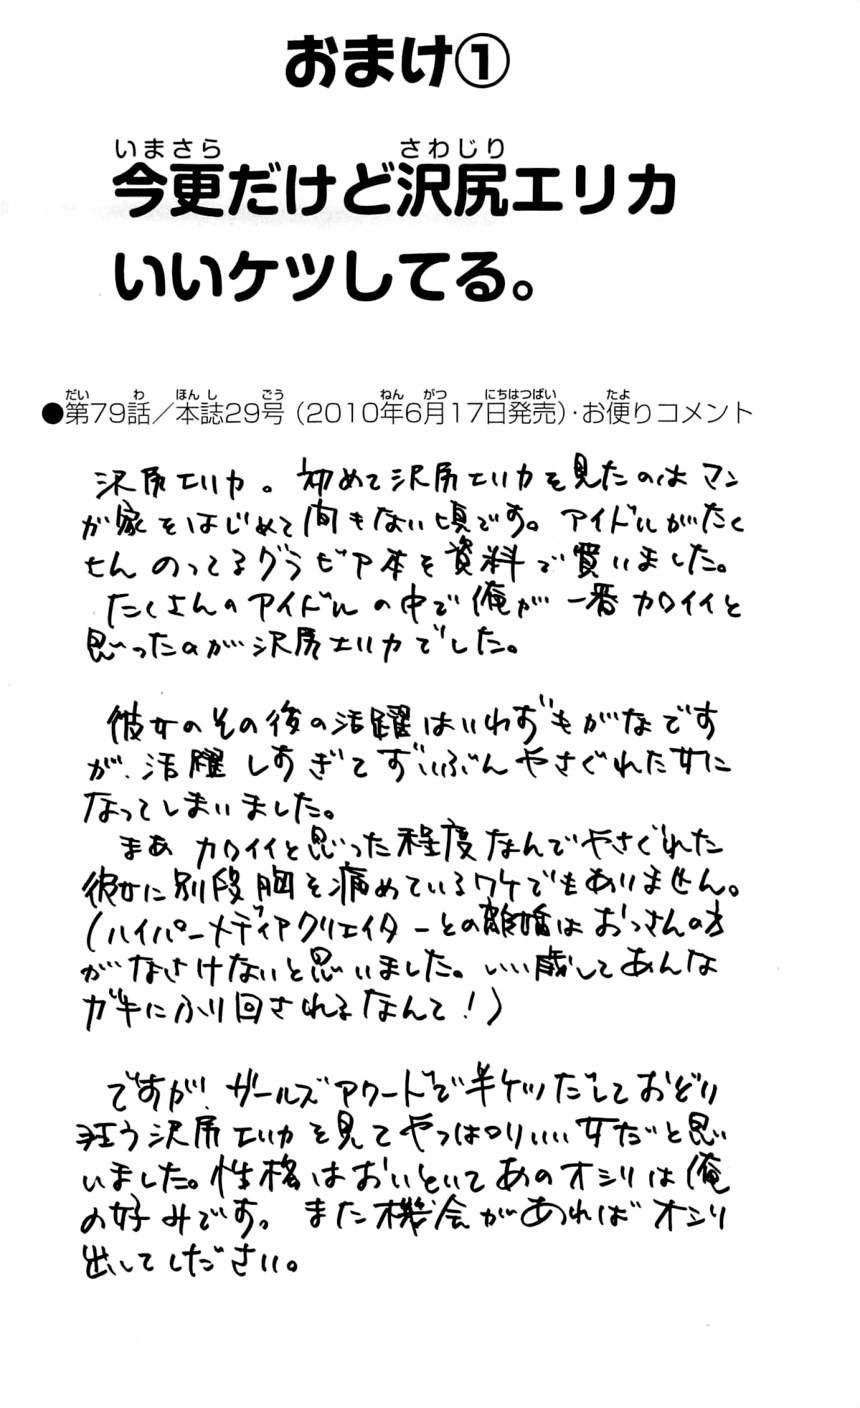 おまけ①
いまさら さわじり
今更だけど沢尻エリカ
いいケツしてる。
だい わ ほんし ごう ねん がつ にちはつばい たよ
●第79話／本誌29号（2010年6月17日発売）・お便りコメント
沢尻エリカ。初めて沢尻エリカを見たのはマン
が家をはじめて間もない頃です。アイドルがたく
さんのってるグラビア本を資料で買いました。
たくさんのアイドルの中で俺が一番カワイイと
思ったのが沢尻エリカでした。
彼女のその後の活躍はいわずもがなです
が、活躍しすぎてずいぶんやさぐれた女に
なってしまいました。
まあカワイイと思った程度なんでやさぐれた
彼女に別段胸を痛めているワケでもありません。
（ハイパーメディアクリエイターとの離婚はおっさんの方
がなさけないと思いました。いい歳してあんな
ガキにふり回されるなんて！）
ですが、ガールズアワードで半ケツだしておどり
狂う沢尻エリカを見てやっぱりいい女だと思
いました。性格はおいといてあのオシリは俺
の好みです。また機会があればオシリ
出してください。